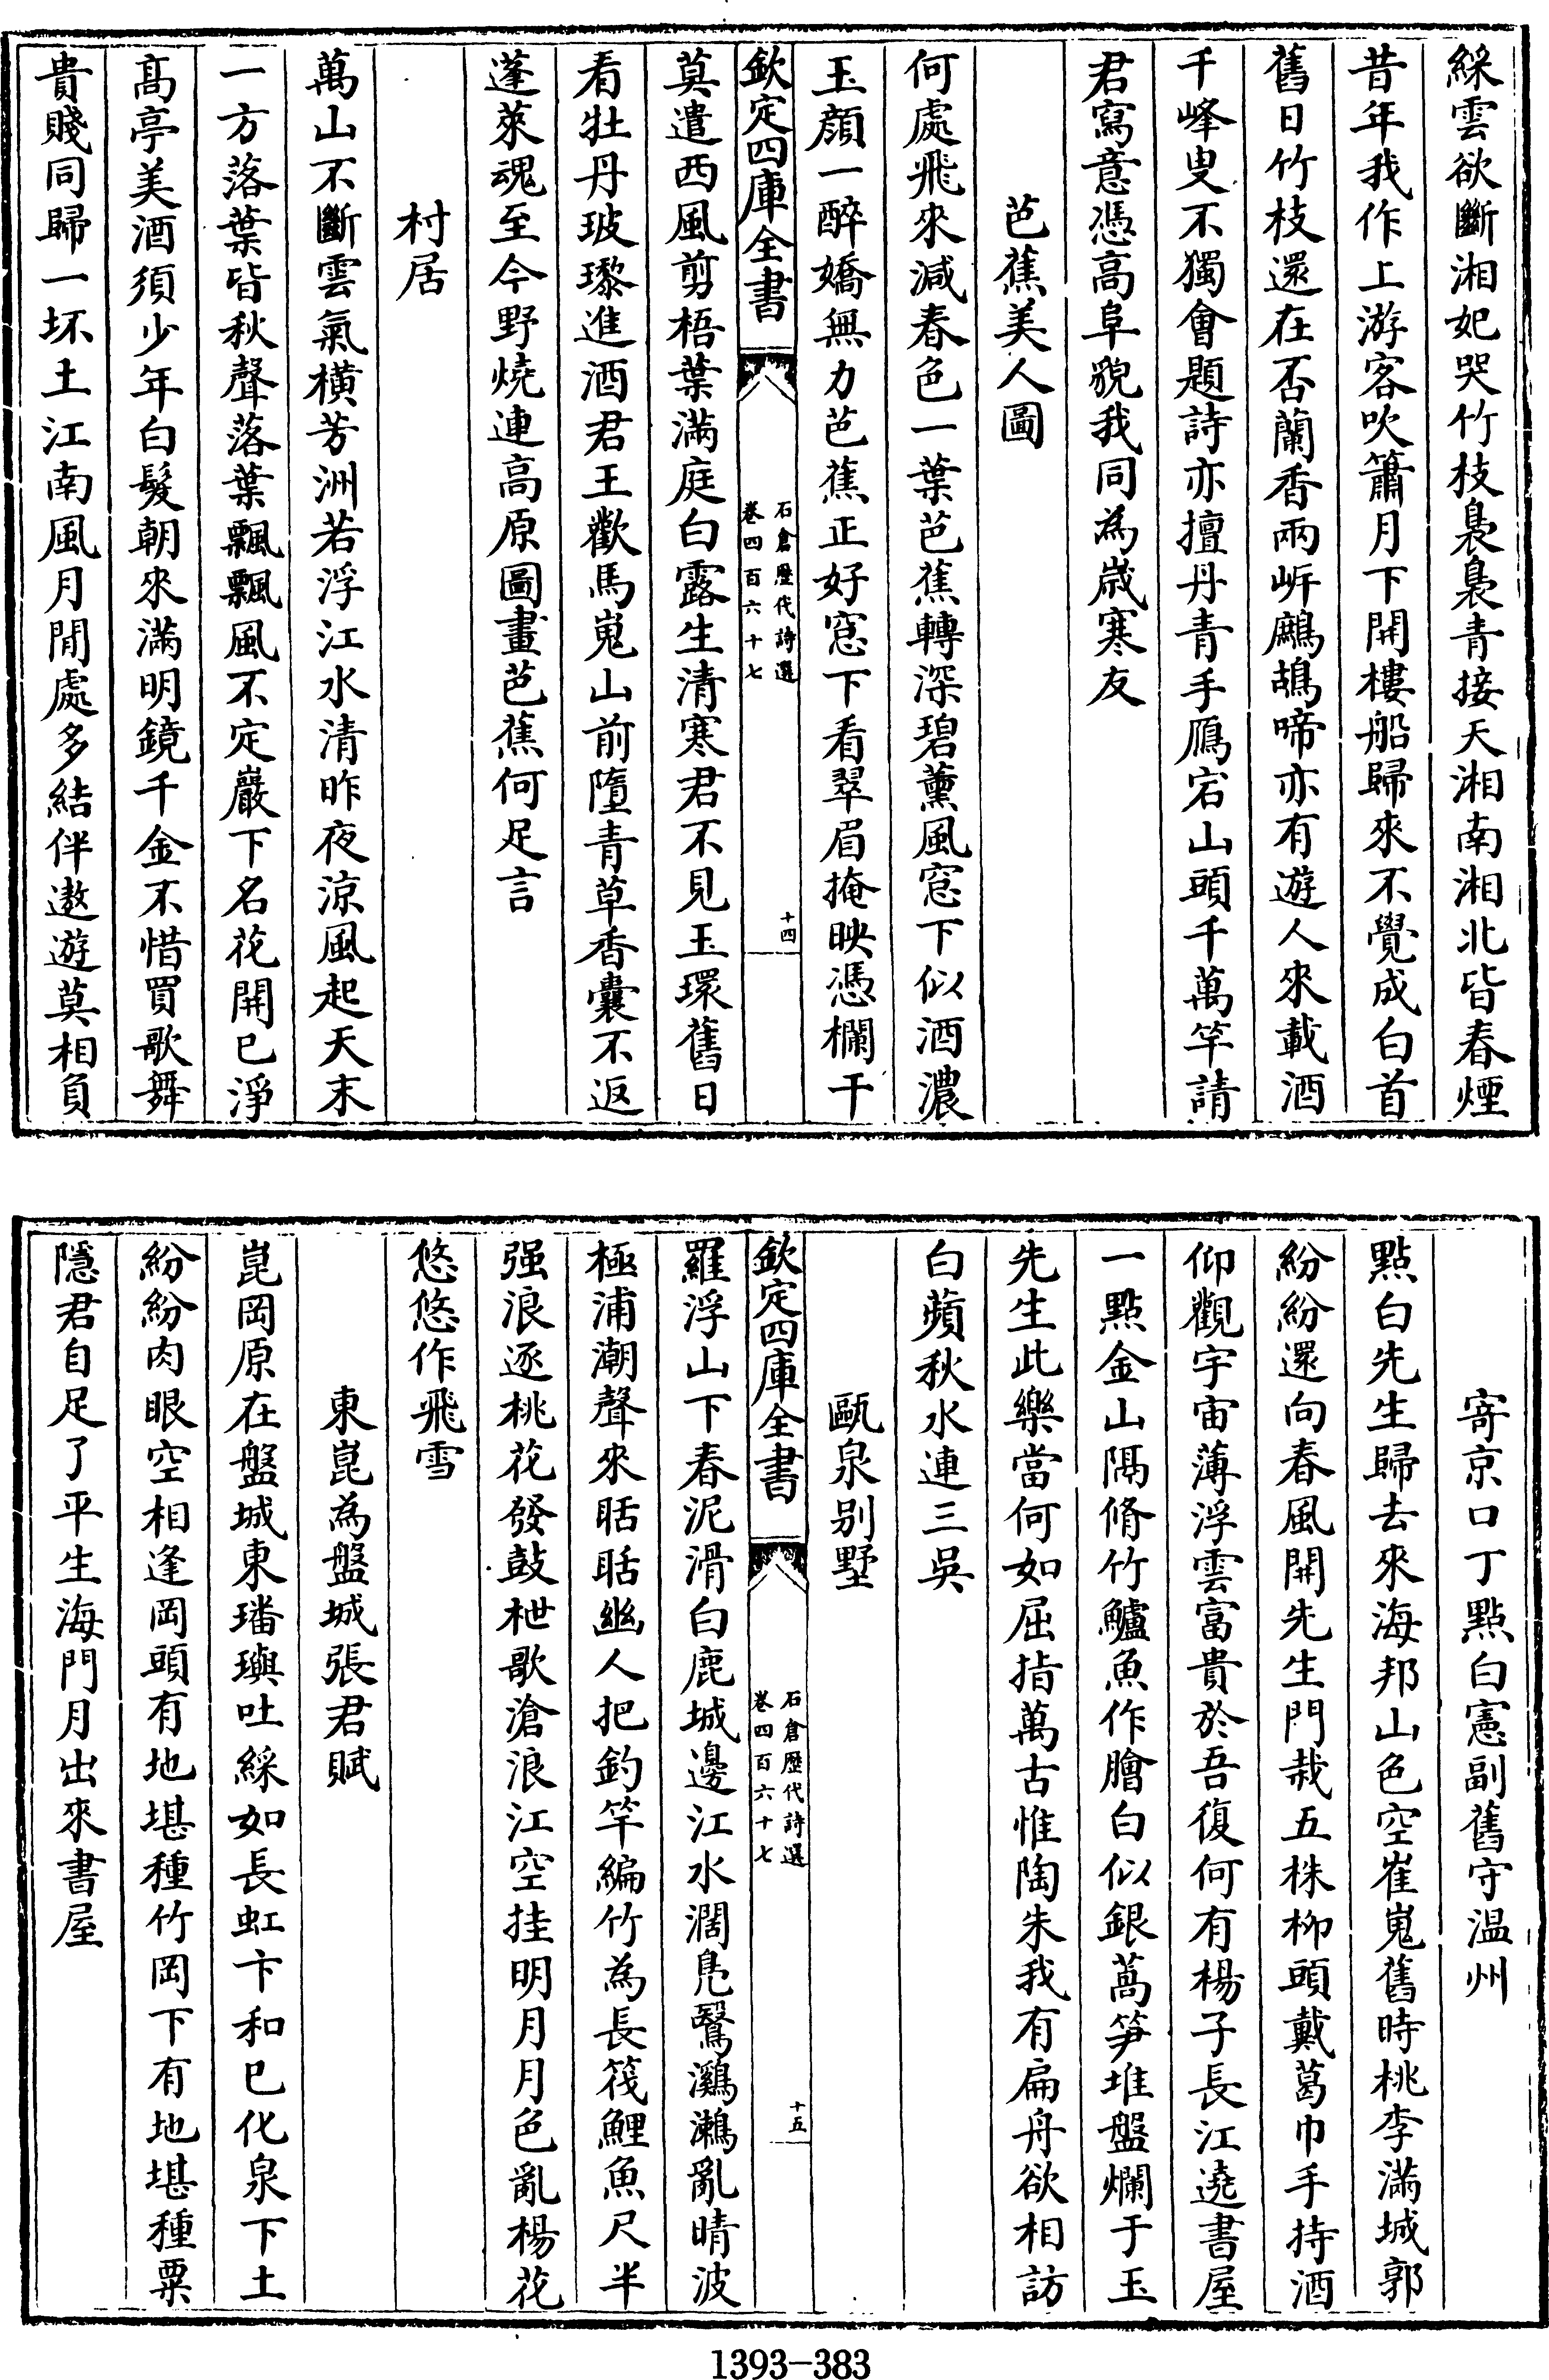 綵雲欲斷湘妃哭竹枝裊裊青接天湘南湘北皆春煙
昔年我作上游客吹簫月下開樓船歸來不覺成白首
舊日竹枝還在否蘭香兩岍鷓鴣啼亦有遊人來載酒
千峰叟不獨會題詩亦擅丹青手鴈宕山頭千萬竿請
君寫意憑高阜貌我同為歲寒友
芭蕉美人圖
何處飛來減春色一葉芭蕉轉深碧薰風窓下似酒濃
玉顏一醉嬌無力芭蕉正好窓下看翠眉掩映憑欄干
欽定四庫全書
石倉歷代詩選
卷四百六十七
十四
莫遣西風剪梧葉滿庭白露生清寒君不見玉環舊日
看牡丹玻瓈進酒君王歡馬嵬山前墮青草香囊不返
蓬萊魂至今野燒連高原圖畫芭蕉何足言
村居
萬山不斷雲氣橫芳洲若浮江水清昨夜涼風起天末
一方落葉皆秋聲落葉飄飄風不定巖下名花開已淨
髙亭美酒須少年白髮朝來滿明鏡千金不惜買歌舞
貴賤同歸一坏土江南風月閒處多結伴遨遊莫相負
寄京口丁點白憲副舊守温州
點白先生歸去來海邦山色空崔嵬舊時桃李滿城郭
紛紛還向春風開先生門栽五株柳頭戴葛巾手持酒
仰觀宇宙薄浮雲富貴於吾復何有楊子長江遶書屋
一點金山隅脩竹鱸魚作膾白似銀蒿笋堆盤爛于玉
先生此樂當何如屈指萬古惟陶朱我有扁舟欲相訪
白蘋秋水連三吳
甌泉别墅
欽定四庫全書
石倉歷代詩選
卷四百六十七
十五
羅浮山下春泥滑白鹿城邊江水濶鳧鷖鸂鷘亂晴波
極浦潮聲來聒聒幽人把釣竿編竹為長筏鯉魚尺半
强浪逐桃花發鼓枻歌滄浪江空挂明月月色亂楊花
悠悠作飛雪
東崑為盤城張君賦
崑岡原在盤城東璠璵吐綵如長虹卞和已化泉下土
紛紛肉眼空相逢岡頭有地堪種竹岡下有地堪種粟
隱君自足了平生海門月出來書屋
1393-383